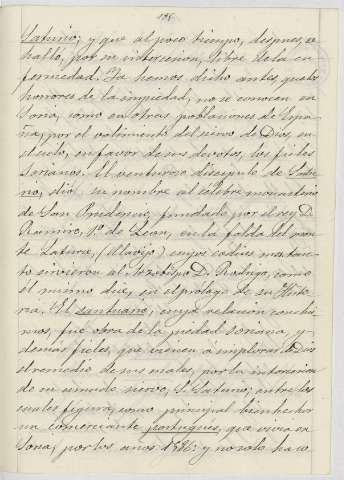 Saturio; y que al poco tiempo, despues, se
halló, por su intercesion, libre de la en
fermedad. Ya hemos dicho antes, que los
horrores de la impiedad, no se conocen en
Soria, como en otras poblaciones de Espa
ña, por el valimento del siervo de Dios, en
el cielo, en favor de sus devotos, los fieles
sorianos. El venturoso discipulo de Satu
rio, dió su nombre al célebre monasterio
de San Prudencio, fundado por el rey D.
Ramiro, 1º de Leon, en la falda del mon
te Laturce, (Clavijo) cuyos codices man tan
to sirvieron al Arzobispo D. Rodrigo, como
él mismo dice, en el prólogo de su Histo
ria. El santuario, cuya relacion conclui
mos, fué obra de la piedad soriana, y
demás fieles, que vienen á implorar á Dios
el remedio de sus males, por la intercesion
de su amado siervo, S. Saturio; entre los
cuales figura, como principal bienhechor
un comerciante portugues, que vivia en
Soria, por los años 1586: y no solo hace